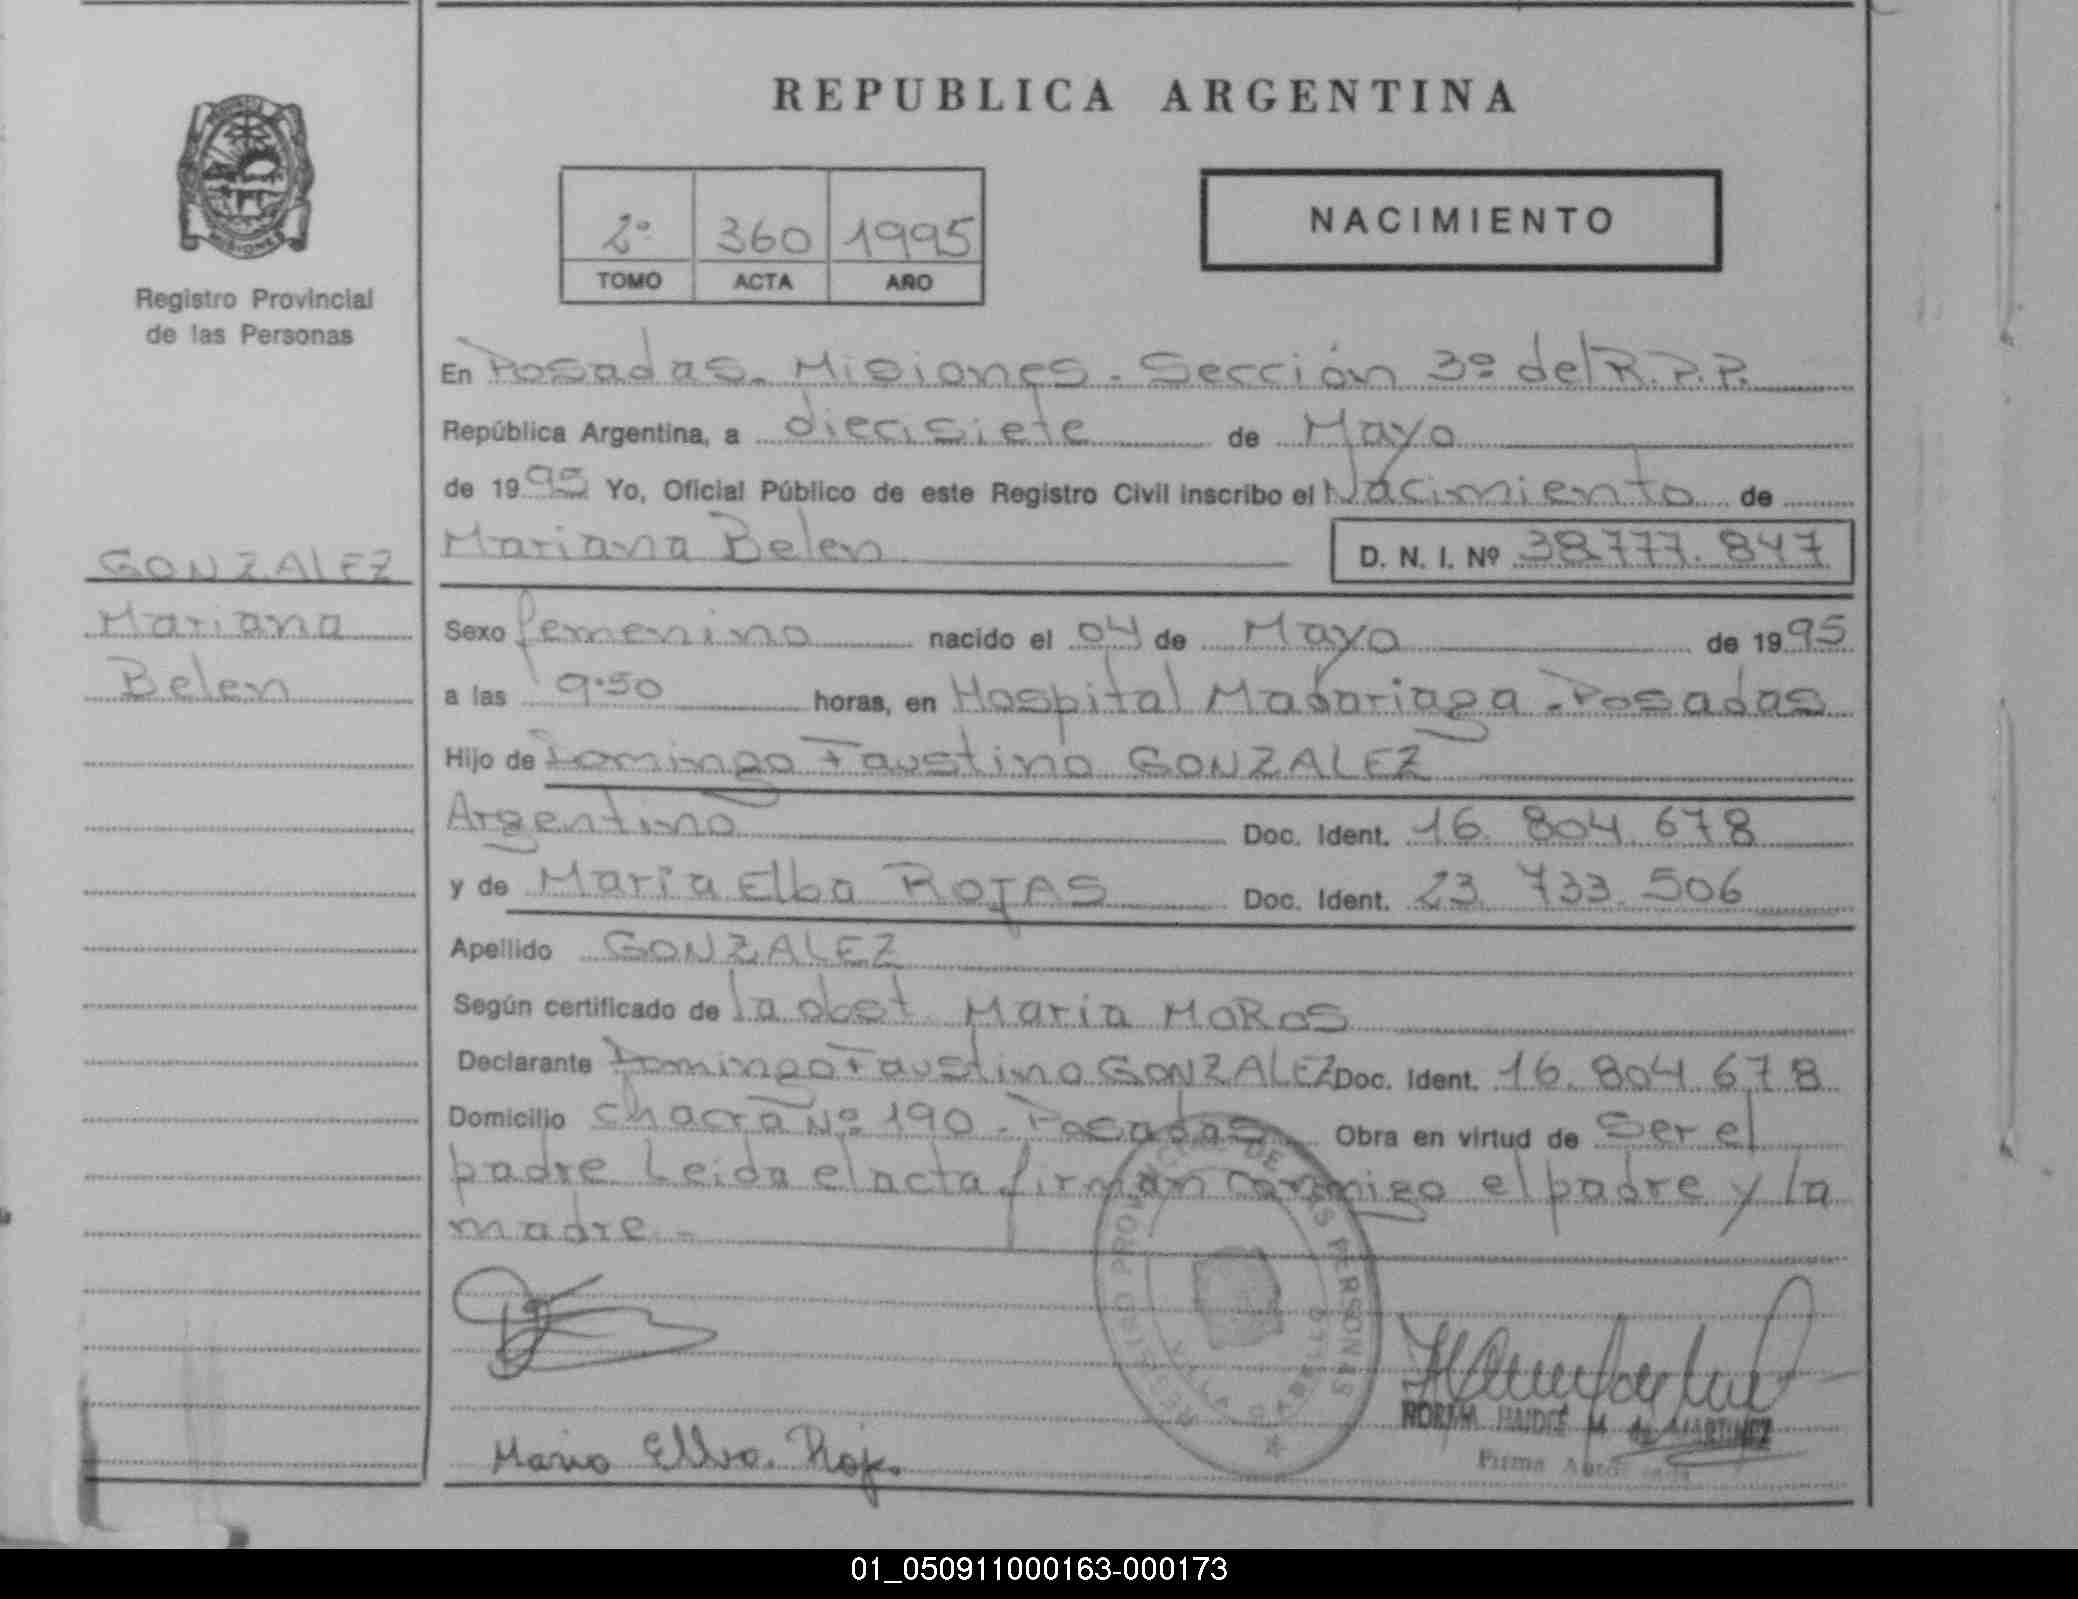 REPUBLICA ARGENTINA
MISIONES
Registro Provincial
de las Personas
2º 360 1995
TOMO ACTA AÑO
NACIMIENTO
En Posadas. Misiones. Sección 3º del R.P.P.
República Argentina, a diecisiete de Mayo
de 1995 Yo, Oficial Público de este Registro Civil inscribo el Nacimiento de
Mariana Belen D. N. I. Nº 38.777.847
GONZALEZ
Mariana
Belen
Sexo femenino nacido el 04 de Mayo de 1995
a las 9.50 horas, en Hospital Madariaga - Posadas
Hijo de Domingo Faustino GONZALEZ
Argentino Doc. Ident. 16.804.678
y de María Elba ROJAS Doc. Ident. 23.733.506
Apellido GONZALEZ
Según certificado de la obst. María MOROS
Declarante Domingo Faustino GONZALEZ Doc. Ident. 16.804.678
Domicilio Chacra Nº 190 - Posadas Obra en virtud de ser el
padre Leida el acta firman conmigo el padre y la
madre.-
REGISTRO PROVINCIAL DE LAS PERSONAS
VILLA CABELLO
NORMA HAIDEE M de MARTINEZ
Firma Autorizada
Maria Elba. Roj.
01_050911000163-000173